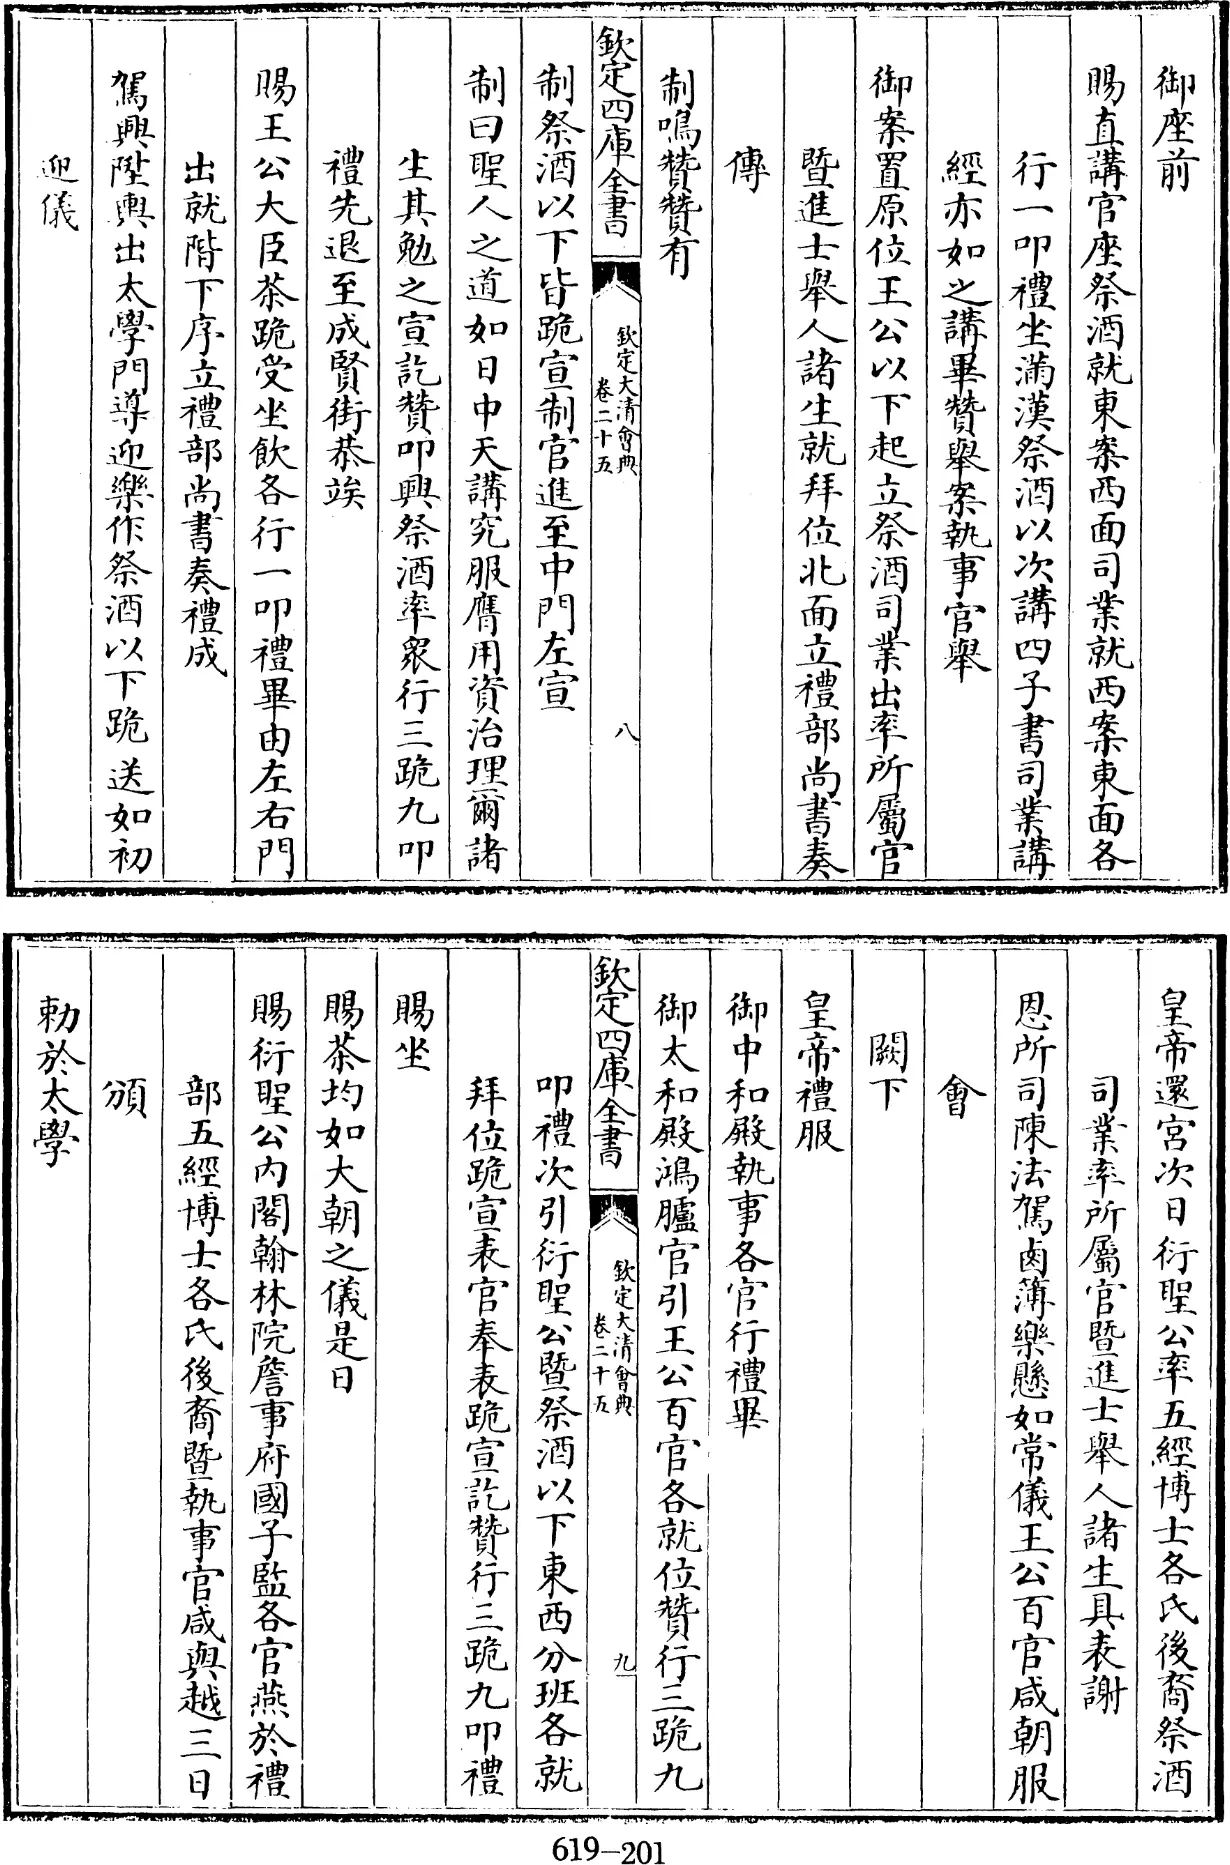 御座前
賜直講官座祭酒就東案西面司業就西案東面各
行一叩禮坐滿漢祭酒以次講四子書司業講
經亦如之講畢贊舉案執事官舉
御案置原位王公以下起立祭酒司業出率所屬官
暨進士舉人諸生就拜位北面立禮部尚書奏
傳
制鳴贊贊有
欽定四庫全書
欽定大清會典
卷二十五
八
制祭酒以下皆跪宣制官進至中門左宣
制曰聖人之道如日中天講究服膺用資治理爾諸
生其勉之宣訖贊叩興祭酒率衆行三跪九叩
禮先退至成賢街恭竢
賜王公大臣茶跪受坐飲各行一叩禮畢由左右門
出就階下序立禮部尚書奏禮成
駕興陞輿出太學門導迎樂作祭酒以下跪送如初
迎儀
皇帝還宮次日衍聖公率五經博士各氏後裔祭酒
司業率所屬官暨進士舉人諸生具表謝
恩所司陳法駕鹵簿樂懸如常儀王公百官咸朝服
會
闕下
皇帝禮服
御中和殿執事各官行禮畢
御太和殿鴻臚官引王公百官各就位贊行三跪九
欽定四庫全書
欽定大清會典
卷二十五
九
叩禮次引衍聖公暨祭酒以下東西分班各就
拜位跪宣表官奉表跪宣訖贊行三跪九叩禮
賜坐
賜茶均如大朝之儀是日
賜衍聖公內閣翰林院詹事府國子監各官燕於禮
部五經博士各氏後裔暨執事官咸與越三日
頒
勅於太學
619-201